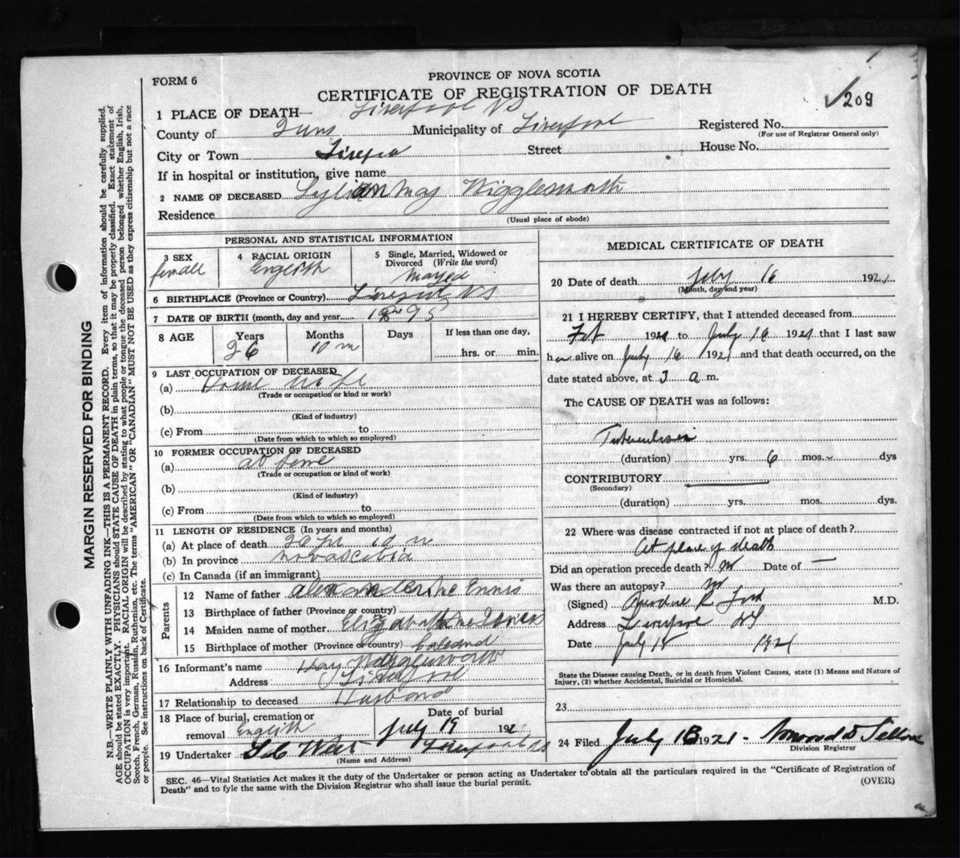 PROVINCE OF NOVA SCOTIA
FORM 6
CERTIFICATE OF REGISTRATION OF DEATH
209
1 PLACE OF DEATH— Liverpool NS
Registered No.
(For use of Registrar General only)
County of Municipality of Liverpool
City or Town Street House No.
If in hospital or institution, give name
2 NAME OF DECEASED Lylian May Wigglesworth
Residence
(Usual place of abode)
PERSONAL AND STATISTICAL INFORMATION
3 SEX
female
4 RACIAL ORIGIN
English
5 Single, Married, Widowed or Divorced (Write the word)
6 BIRTHPLACE (Province or Country) NS
7 DATE OF BIRTH (month, day and year)
8 AGE
Years
26
Months
10 m
Days
If less than one day,
hrs. or min.
9 LAST OCCUPATION OF DECEASED
(a)
(Trade or occupation or kind or work)
(b)
(Kind of industry)
(c) From to
(Date from which to which so employed)
10 FORMER OCCUPATION OF DECEASED
(a) at
(Trade or occupation or kind or work)
(b)
(Kind of industry)
(c) From to
(Date from which to which so employed)
11 LENGTH OF RESIDENCE (In years and months)
(a) At place of death
(b) In province novascotia
(c) In Canada (if an immigrant)
Parents
12 Name of father Alexander
13 Birthplace of father (Province or country)
14 Maiden name of mother Elizabeth
15 Birthplace of mother (Province or country)
16 Informant's name
Address
17 Relationship to deceased Husband
18 Place of burial, cremation or removal English
Date of burial
July 19 192
19 Undertaker West
(Name and Address)
MEDICAL CERTIFICATE OF DEATH
20 Date of death July 16 1921
(Month, day and year)
21 I HEREBY CERTIFY, that I attended deceased from
1921 to July 16 1921 that I last saw
her alive on July 16 1921 and that death occurred, on the
date stated above, at 3 a m.
The CAUSE OF DEATH was as follows:
Tuberculosis
(duration) yrs. 6 mos. dys
CONTRIBUTORY
(Secondary)
(duration) yrs. mos. dys.
22 Where was disease contracted if not at place of death?
At place of death
Did an operation precede death? no Date of —
Was there an autopsy? no
(Signed) Ford M.D.
Address Liverpool NS
Date July 18 1921
State the Disease causing Death, or in Death from Violent Causes, state (1) Means and Nature of Injury, (2) whether Accidental, Suicidal or Homicidal.
23
24 Filed July 18 1921-
Division Registrar
SEC. 46—Vital Statistics Act makes it the duty of the Undertaker or person acting as Undertaker to obtain all the particulars required in the "Certificate of Registration of
Death" and to fyle the same with the Division Registrar who shall issue the burial permit.
(OVER)
MARGIN RESERVED FOR BINDING
N.B.—WRITE PLAINLY WITH UNFADING INK—THIS IS A PERMANENT RECORD. Every item of information should be carefully supplied.
AGE should be stated EXACTLY. PHYSICIANS should STATE CAUSE OF DEATH in plain terms, so that it may be properly classified. Exact statement of
OCCUPATION is very important. RACIAL ORIGIN will be described by stating to what people or tongue the deceased person belonged whether English, Irish,
Scotch, French, German, Russian, Ruthenian, etc. The terms "AMERICAN" OR "CANADIAN" MUST NOT BE USED as they express citizenship but not a race
or people. See instructions on back of Certificate.